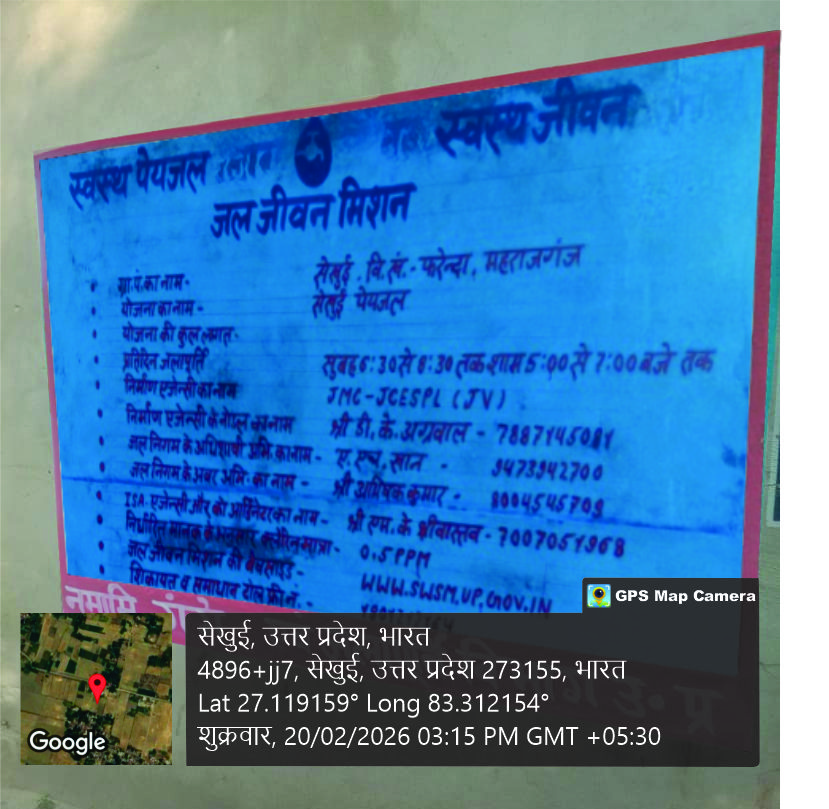 स्वस्थ पेयजल स्वस्थ जीवन
जल जीवन मिशन
• ग्रा.पं.का नाम- सेखुई . वि.खं.- फरेन्दा, महराजगंज
• योजना का नाम- सेखुई पेयजल
• योजना की कुल लागत-
• प्रतिदिन जलापूर्ति सुबह 6:30 से 8:30 तक शाम 5:00 से 7:00 बजे तक
• निर्माण एजेन्सी का नाम JMC-JCESPL (JV)
• निर्माण एजेन्सी के नोडल का नाम श्री डी. के. अग्रवाल - 7887145081
• जल निगम के अधिशाषी अभि. का नाम- ए. एच. खान - 9473942700
• जल निगम के अवर अभि- का नाम- श्री अभिषेक कुमार - 8004545709
• ISA- एजेन्सी और को आर्डिनेटर का नाम- श्री एम. के श्रीवास्तव - 7007051968
• निर्धारित मानक के अनुसार क्लोरीन मात्रा- 0.5 PPM
• जल जीवन मिशन की वेबसाइड- WWW.SWSM.UP.GOV.IN
• शिकायत व समाधान टोल फ्री न.-
नमामि
उ॰ प्र
GPS Map Camera
सेखुई, उत्तर प्रदेश, भारत
4896+jj7, सेखुई, उत्तर प्रदेश 273155, भारत
Lat 27.119159° Long 83.312154°
शुक्रवार, 20/02/2026 03:15 PM GMT +05:30
Google